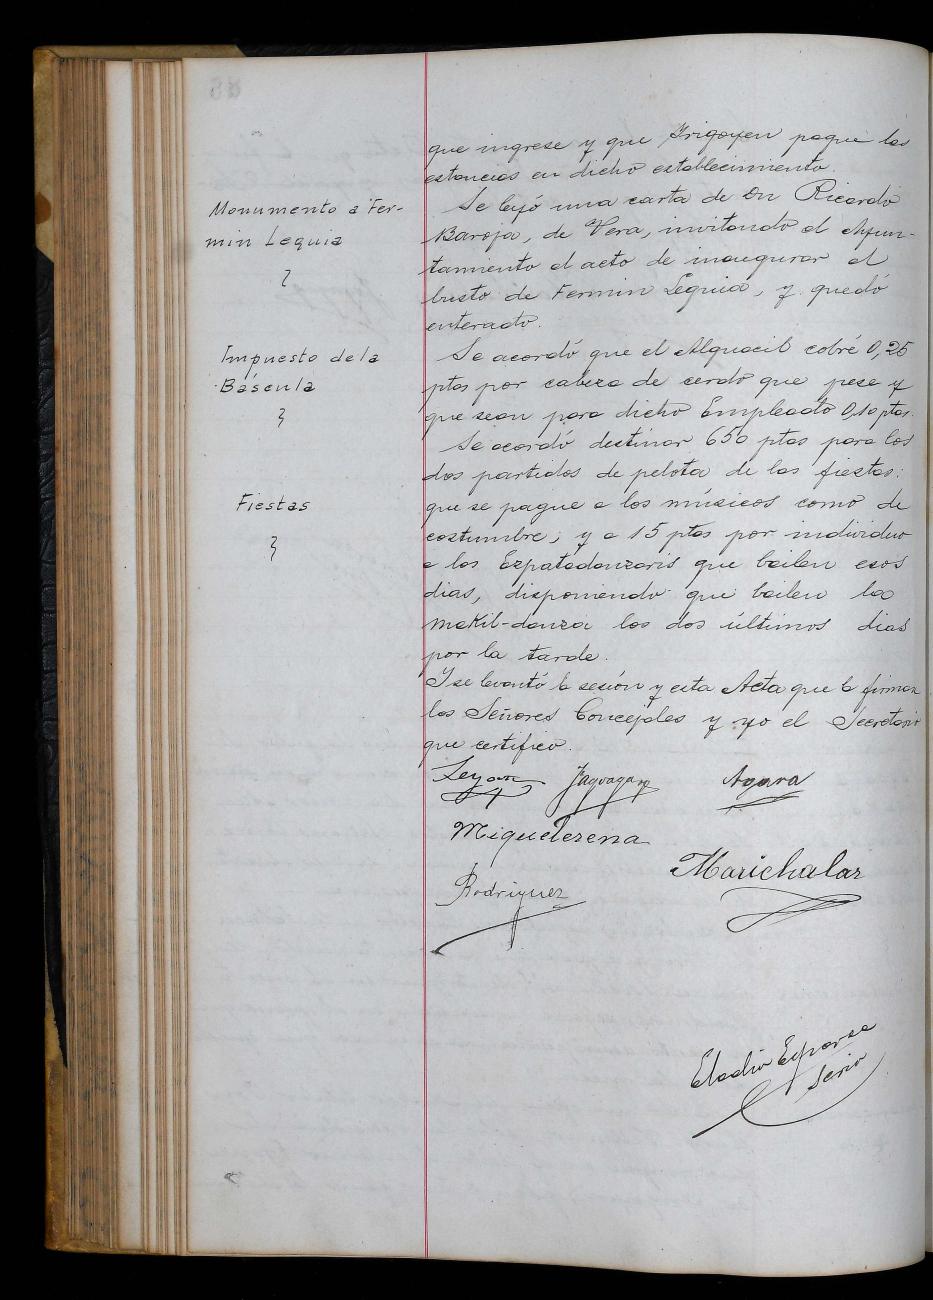 que ingrese y que Irigoyen pague las
estancias en dicho establecimiento.
Monumento a Fer-
min Leguia
Se leyó una carta de Dn Ricardo
Baroja, de Vera, invitando al Ayun-
tamiento al acto de inaugurar el
busto de Fermin Leguia, y quedó
enterado.
Impuesto de la
Báscula
Se acordó que el Alguacil cobré 0,25
ptas por cabeza de cerdo que pese y
que sean para dicho Empleado 0,10 ptas.
Se acordó destinar 650 ptas para los
dos partidos de pelota de las fiestas:
Fiestas
que se pague a los músicos como de
costumbre; y a 15 ptas por individuo
a los Ezpatadanzaris que bailen esos
dias, disponiendo que bailen la
makil-danza los dos últimos dias
por la tarde.
Y se levantó la sesión y esta Acta que la firman
los Señores Concejales y yo el Secretario
que certifico.
Agara
Miquelerena
Marichalar
Rodriguez
Eladio Esparza
Serio